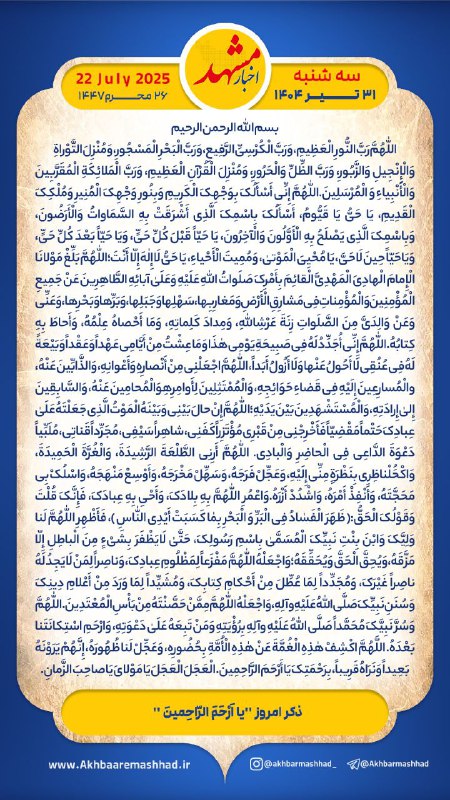 اخبار مشهد
سه شنبه
۳۱ تیر ۱۴۰۴
22 July 2025
۲۶ محرم ۱۴۴۷
بسم الله الرحمن الرحیم
اللّٰهُمَّ رَبَّ النُّورِ الْعَظِیمِ، وَرَبَّ الْکُرْسِیِّ الرَّفِیعِ، وَرَبَّ الْبَحْرِ الْمَسْجُورِ، وَمُنْزِلَ التَّوْراةِ
وَالْإِنْجِیلِ وَالزَّبُورِ، وَرَبَّ الظِّلِّ وَالْحَرُورِ، وَمُنْزِلَ الْقُرْآنِ الْعَظِیمِ، وَرَبَّ الْمَلائِکَةِ الْمُقَرَّبِینَ
وَالْأَنْبِیاءِ وَالْمُرْسَلِینَ. اللّٰهُمَّ إِنِّی أَسْأَلُکَ بِوَجْهِکَ الْکَرِیمِ وَبِنُورِ وَجْهِکَ الْمُنِیرِ وَمُلْکِکَ
الْقَدِیمِ، یَا حَیُّ یَا قَیُّومُ، أَسْأَلُکَ بِاسْمِکَ الَّذِی أَشْرَقَتْ بِهِ السَّمَاواتُ وَالْأَرَضُونَ،
وَبِاسْمِکَ الَّذِی یَصْلَحُ بِهِ الْأَوَّلُونَ وَالْآخِرُونَ، یَا حَیّاً قَبْلَ کُلِّ حَیٍّ، وَیَا حَیّاً بَعْدَ کُلِّ حَیٍّ،
وَیَا حَیّاً حِینَ لَا حَیَّ، یَا مُحْیِیَ الْمَوْتىٰ، وَمُمِیتَ الْأَحْیاءِ، یَا حَیُّ لَا إِلٰهَ إِلّا أَنْتَ؛ اللّٰهُمَّ بَلِّغْ مَوْلانَا
الْإِمامَ الْهادِیَ الْمَهْدِیَّ الْقائِمَ بِأَمْرِکَ صَلَواتُ اللّٰهِ عَلَیْهِ وَعَلَىٰ آبائِهِ الطَّاهِرِینَ عَنْ جَمِیعِ
الْمُؤْمِنِینَ وَالْمُؤْمِناتِ فِی مَشارِقِ الْأَرْضِ وَمَغارِبِها، سَهْلِها وَجَبَلِها، وَبَرِّها وَبَحْرِها، وَعَنِّی
وَعَنْ وَالِدَیَّ مِنَ الصَّلَواتِ زِنَةَ عَرْشِ اللّٰهِ، وَمِدادَ کَلِماتِهِ، وَمَا أَحْصاهُ عِلْمُهُ، وَأَحاطَ بِهِ
کِتابُهُ. اللّٰهُمَّ إِنِّی أُجَدِّدُ لَهُ فِی صَبِیحَةِ یَوْمِی هٰذَا وَمَا عِشْتُ مِنْ أَیَّامِی عَهْداً وَعَقْداً وَبَیْعَةً
لَهُ فِی عُنُقِی لَا أَحُولُ عَنْها وَلَا أَزُولُ أَبَداً، اللّٰهُمَّ اجْعَلْنِی مِنْ أَنْصارِهِ وَأَعْوانِهِ، وَالذَّابِّینَ عَنْهُ،
وَالْمُسارِعِینَ إِلَیْهِ فِی قَضاءِ حَوَائِجِهِ، وَالْمُمْتَثِلِینَ لِأَوامِرِهِ وَالْمُحامِینَ عَنْهُ، وَالسَّابِقِینَ
إِلىٰ إِرادَتِهِ، وَالْمُسْتَشْهَدِینَ بَیْنَ یَدَیْهِ؛ اللّٰهُمَّ إِنْ حالَ بَیْنِی وَبَیْنَهُ الْمَوْتُ الَّذِی جَعَلْتَهُ عَلَىٰ
عِبادِکَ حَتْماً مَقْضِیّاً فَأَخْرِجْنِی مِنْ قَبْرِی مُؤْتَزِراً کَفَنِی، شاهِراً سَیْفِی، مُجَرِّداً قَناتِی، مُلَبِّیاً
دَعْوَةَ الدَّاعِی فِی الْحاضِرِ وَالْبادِی. اللّٰهُمَّ أَرِنِی الطَّلْعَةَ الرَّشِیدَةَ، وَالْغُرَّةَ الْحَمِیدَةَ،
وَاکْحُلْ ناظِرِی بِنَظْرَةٍ مِنِّی إِلَیْهِ، وَعَجِّلْ فَرَجَهُ، وَسَهِّلْ مَخْرَجَهُ، وَأَوْسِعْ مَنْهَجَهُ، وَاسْلُکْ بِی
مَحَجَّتَهُ، وَأَنْفِذْ أَمْرَهُ، وَاشْدُدْ أَزْرَهُ. وَاعْمُرِ اللّٰهُمَّ بِهِ بِلادَکَ، وَأَحْیِ بِهِ عِبادَکَ، فَإِنَّکَ قُلْتَ
وَقَوْلُکَ الْحَقُّ: ﴿ظَهَرَ الْفَسادُ فِی الْبَرِّ وَ الْبَحْرِ بِمٰا کَسَبَتْ أَیْدِی النّاسِ﴾، فَأَظْهِرِ اللّٰهُمَّ لَنا
وَلِیَّکَ وَابْنَ بِنْتِ نَبِیِّکَ الْمُسَمَّىٰ بِاسْمِ رَسُولِکَ، حَتَّىٰ لَا یَظْفَرَ بِشَیْءٍ مِنَ الْباطِلِ إِلّا
مَزَّقَهُ، وَیُحِقَّ الْحَقَّ وَیُحَقِّقَهُ؛ وَاجْعَلْهُ اللّٰهُمَّ مَفْزَعاً لِمَظْلُومِ عِبادِکَ، وَناصِراً لِمَنْ لَا یَجِدُ لَهُ
ناصِراً غَیْرَکَ، وَمُجَدِّداً لِمَا عُطِّلَ مِنْ أَحْکامِ کِتابِکَ، وَمُشَیِّداً لِمَا وَرَدَ مِنْ أَعْلامِ دِینِکَ
وَسُنَنِ نَبِیِّکَ صَلَّى اللّٰهُ عَلَیْهِ وَآلِهِ، وَاجْعَلْهُ اللّٰهُمَّ مِمَّنْ حَصَّنْتَهُ مِنْ بَأْسِ الْمُعْتَدِینَ. اللّٰهُمَّ
وَسُرَّ نَبِیَّکَ مُحَمَّداً صَلَّى اللّٰهُ عَلَیْهِ وَآلِهِ بِرُؤْیَتِهِ وَمَنْ تَبِعَهُ عَلَىٰ دَعْوَتِهِ، وَارْحَمِ اسْتِکانَتَنا
بَعْدَهُ. اللّٰهُمَّ اکْشِفْ هٰذِهِ الْغُمَّةَ عَنْ هٰذِهِ الْأُمَّةِ بِحُضُورِهِ، وَعَجِّلْ لَنا ظُهُورَهُ، إِنَّهُمْ یَرَوْنَهُ
بَعِیداً وَنَرَاهُ قَرِیباً، بِرَحْمَتِکَ یَا أَرْحَمَ الرَّاحِمِینَ. الْعَجَلَ الْعَجَلَ یَا مَوْلایَ یَا صاحِبَ الزَّمانِ.
ذکر امروز "یا اَرْحَمَ الرّاحِمینَ"
www.Akhbaaremashhad.ir
@akhbarmashhad_
@Akhbarmashhad